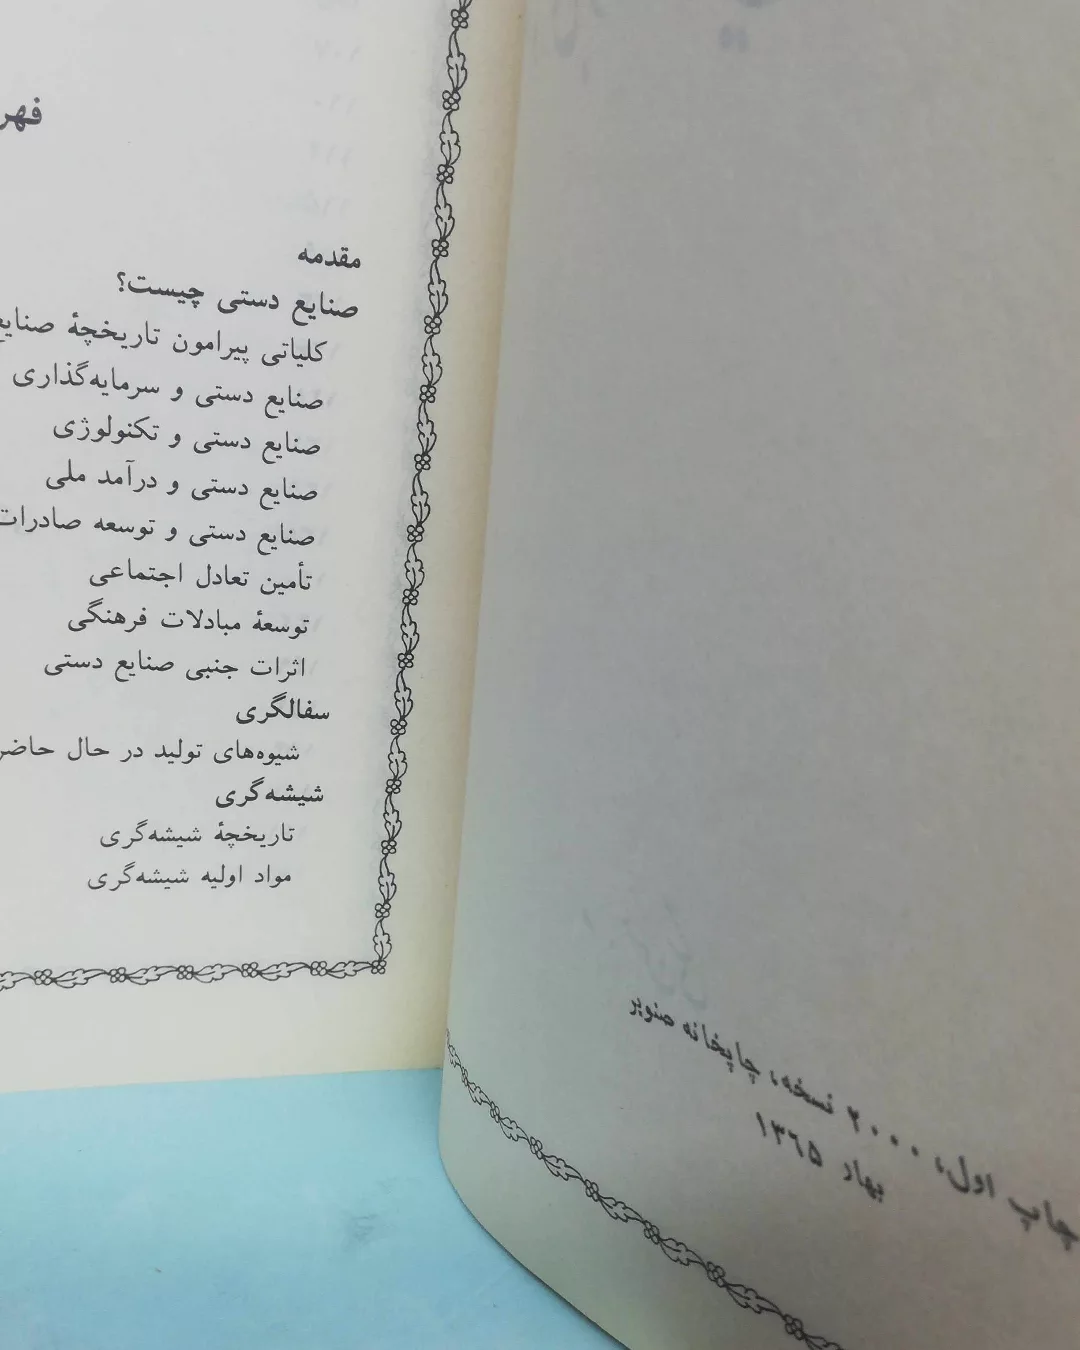 مقدمه
صنایع دستی چیست؟
کلیاتی پیرامون تاریخچهٔ صنایع
صنایع دستی و سرمایه‌گذاری
صنایع دستی و تکنولوژی
صنایع دستی و درآمد ملی
صنایع دستی و توسعه صادرات
تأمین تعادل اجتماعی
توسعهٔ مبادلات فرهنگی
اثرات جنبی صنایع دستی
سفالگری
شیوه‌های تولید در حال حاضر
شیشه‌گری
تاریخچهٔ شیشه‌گری
مواد اولیه شیشه‌گری
چاپ اول، ۲۰۰۰ نسخه، چاپخانه صنوبر
بهار ۱۳۶۵